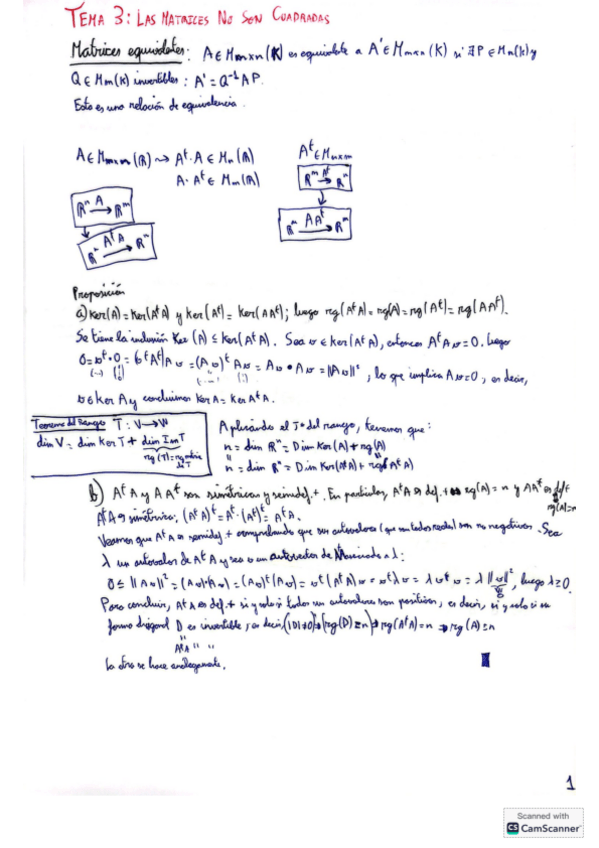 TEMA 3: LAS MATRICES NO SON CUADRADAS
Matrices equivalentes: A∈Mmxn(K) es equivalente a A'∈Mmxn(K) si ∃P∈Mn(K) y
Q∈Mm(K) invertibles: A' = Q⁻¹AP.
Esto es una relación de equivalencia.
A∈Mmxn(R) ⇝ Aᵗ·A∈Mn(R)
A·Aᵗ∈Mm(R)
Rⁿ A→ Rᵐ
Rⁿ AᵗA→ Rⁿ
Aᵗ∈Mnxm
Rᵐ Aᵗ→ Rⁿ
AAᵗ→
Proposición
a) Ker(A) = Ker(AᵗA) y Ker(Aᵗ) = Ker(AAᵗ); luego rg(AᵗA) = rg(A) = rg(Aᵗ) = rg(AAᵗ).
Se tiene la inclusión Ker(A) ≤ Ker(AᵗA). Sea v∈Ker(AᵗA), entonces AᵗAv=0. Luego
0=vᵗ·0 = vᵗAᵗAv = (Av)ᵗAv = Av•Av = ||Av||², lo que implica Av=0, es decir,
v∈Ker A y concluimos Ker A = Ker AᵗA.
Teorema del Rango T: V→W
dim V = dim Ker T + dim Im T
rg(T) = rg matriz de T
Aplicando el T⁰ del rango, tenemos que:
n = dim Rⁿ = Dim Ker(A) + rg(A)
n = dim Rⁿ = Dim Ker(AᵗA) + rg(AᵗA)
b) AᵗA y AAᵗ son simétricas y semidef.+. En particular, AᵗA es def.+ ⇔ rg(A)=n y AAᵗ es def+
rg(A)=
AᵗA es simétrica; (AᵗA)ᵗ = Aᵗ·(Aᵗ)ᵗ = AᵗA.
Veamos que AᵗA es semidef + comprobando que sus autovalores (que son todos reales) son no negativos. Sea
λ un autovalor de AᵗA y sea v un autovector de asociado a λ:
0 ≤ ||Av||² = (Av)•(Av) = (Av)ᵗ(Av) = vᵗ(AᵗA)v = vᵗλv = λvᵗv = λ||v||², luego λ≥0.
Para concluir, AᵗA es def.+ si y solo si todos sus autovalores son positivos, es decir, si y solo si su
forma diagonal D es invertible; es decir, (|D|≠0) rg(D)=n rg(AᵗA)=n rg(A)=n
AᵗA " "
La otra se hace análogamente.
1
Scanned with
CS CamScanner